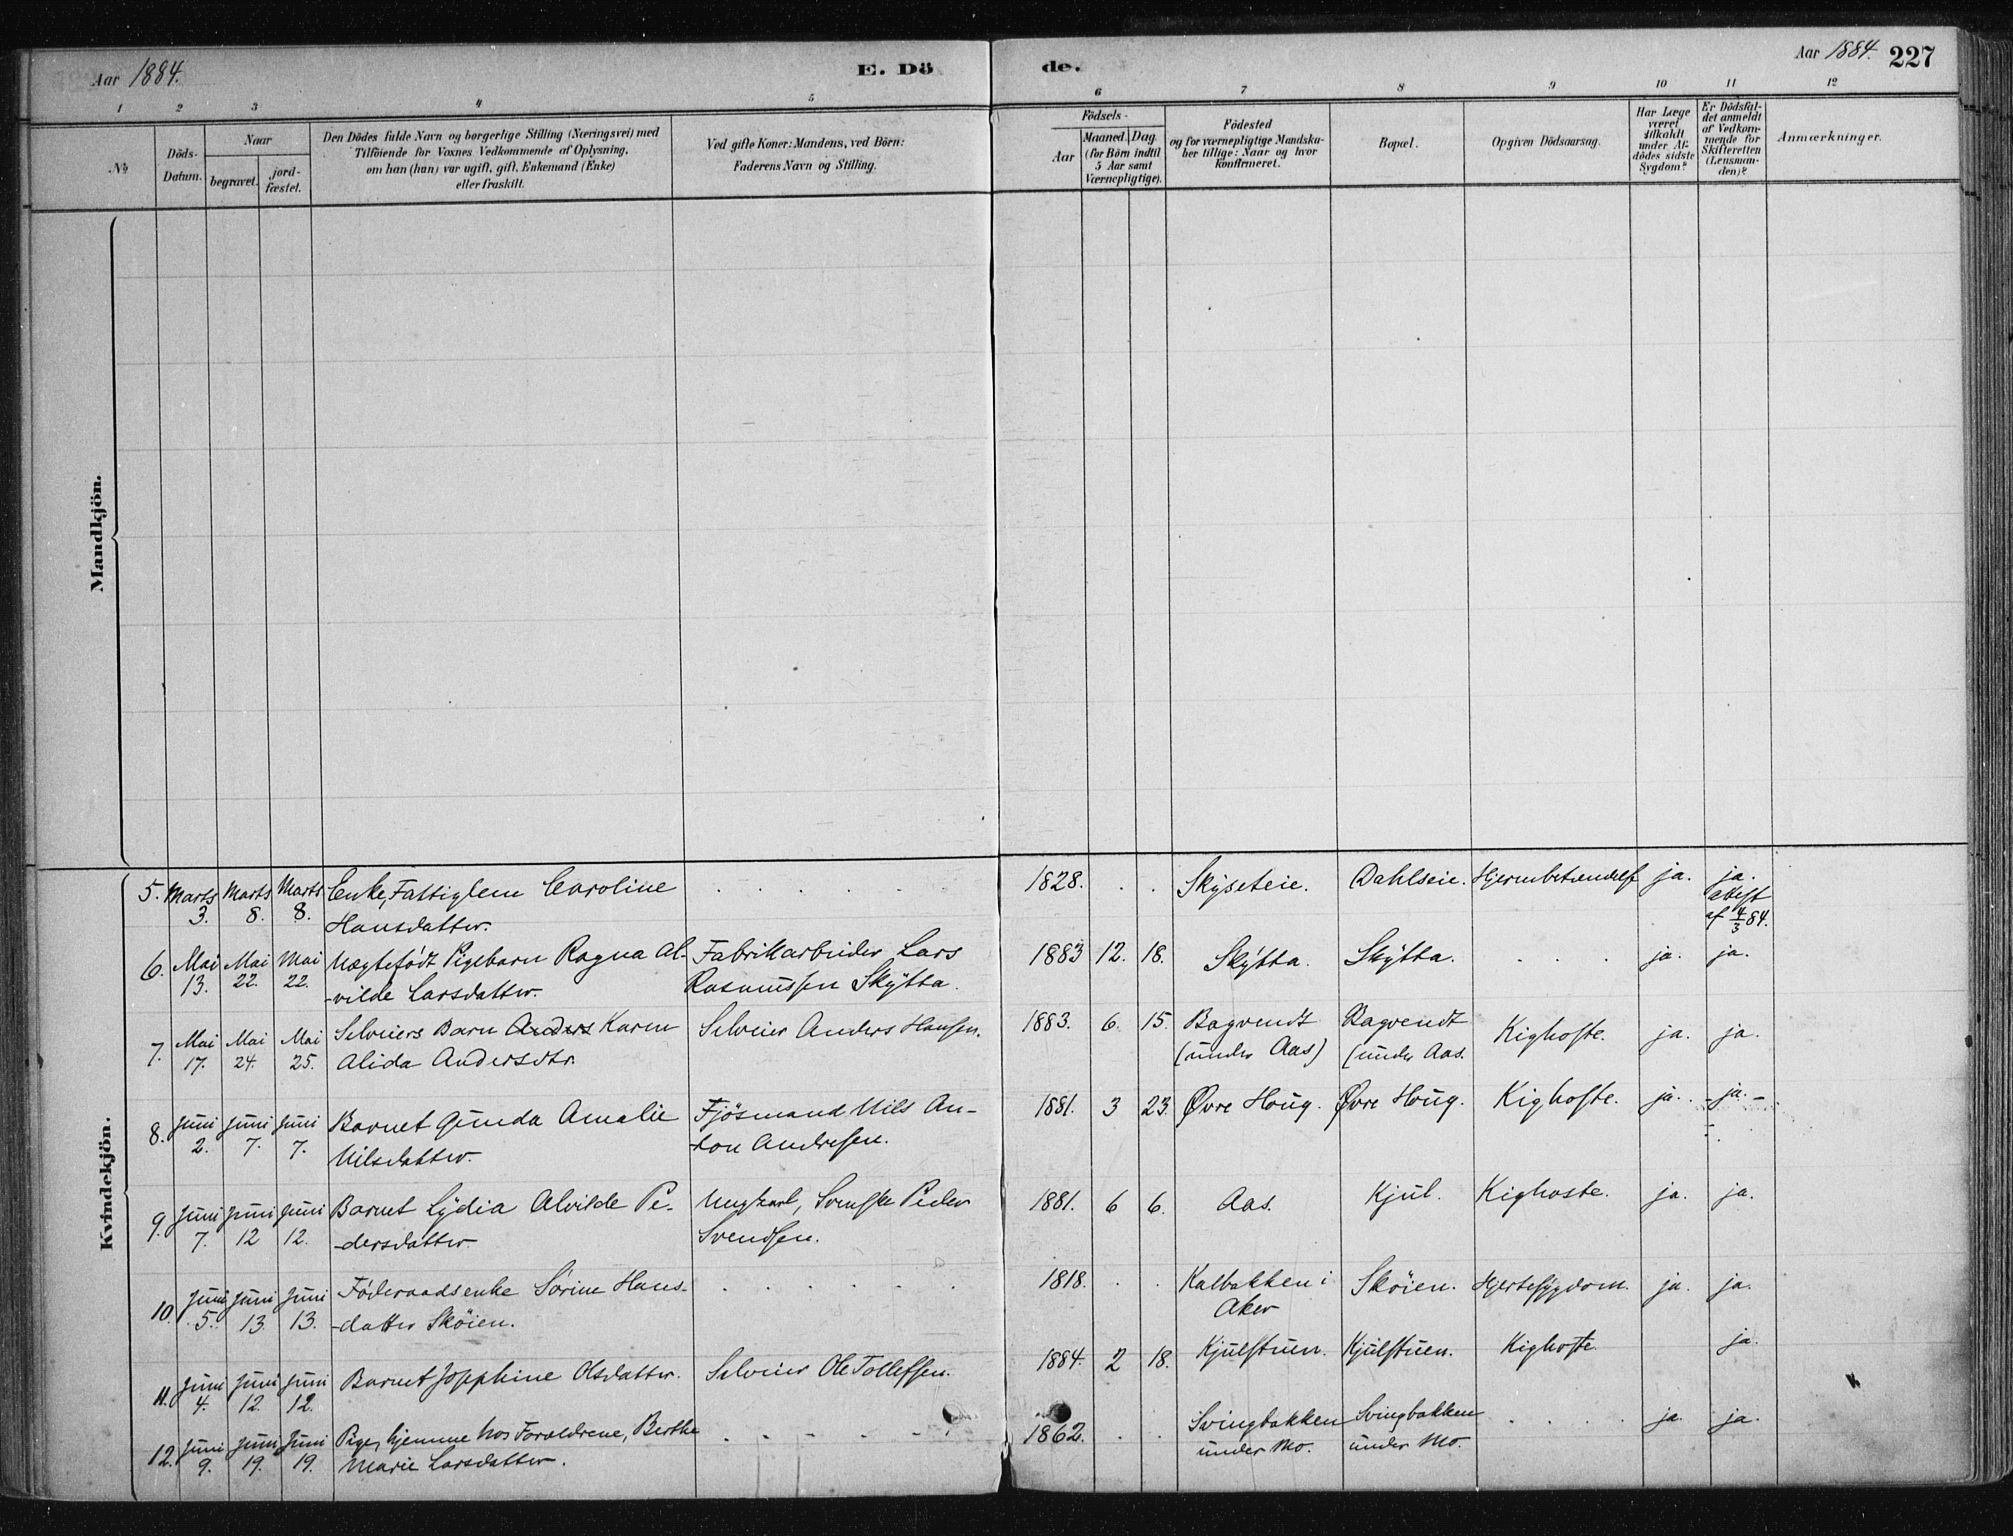 Aar 1884.
E. Dö
de.
Aar 1884. 227
1 2 3 4 5 6 7 8 9 10 11 12
No
Döds-
Datum.
Naar
begravet.
jord-
fæstet.
Den Dödes fulde Navn og borgerlige Stilling (Næringsvei) med
Tilföiende for Voxnes Vedkommende af Oplysning,
om han (hun) var ugift, gift, Enkemand (Enke)
eller fraskilt.
Ved gifte Koner: Mandens, ved Börn:
Faderens Navn og Stilling.
Födsels-
Aar
Maaned. Dag.
(for Börn indtil
5 Aar samt
Værnepligtige).
Födested
og for værnepligtige Mandska-
ber tillige: Naar og hvor
konfirmeret.
Bopæl.
Opgiven Dödsaarsag.
Har Læge
været
tilkaldt
under Af-
dödes sidste
Sygdom?
Er Dödsfal-
det anmeldt
af Vedkom-
mende for
Skifteretten
(Lensman-
den)?
Anmærkninger.
Mandkjön.
Kvindekjön.
5. Marts 3. Marts 8. Marts 8. Enke, Fattiglem Caroline
Hansdatter.
. . . . . 1828. . . Skýseteie. Dahlseie. ja. ja.
Attest
af 4/3 84.
6. Mai 13. Mai 22. Mai 22. Uægtefödt Pigebarn Ragna Al-
-vilde Larsdatter.
Fabrikarbeider Lars
Rasmussen Skýtta.
1883 12. 18. Skýtta. Skýtta. . . . ja. ja.
7. Mai 17. Mai 24. Mai 25. Selveiers Barn Anders Karen
Alida Andersdtr.
Selveier Anders Hansen.
1883. 6. 15. Bagvendt
(under Aas)
Bagvendt
(under Aas.
Kighoste. ja. ja.
8. Juni 2. Juni 7. Juni 7. Barnet Gunda Amalie
Nilsdatter.
Fjösmand Nils An-
-ton Andresen.
1881. 3 23. Øvre Houg. Øvre Houg. Kighoste. ja. ja.
9. Juni 7. Juni 12 Juni 12. Barnet Lýdia Alvilde Pe-
-dersdatter.
Ungkarl, Svenske Peder
Svendsen.
1881. 6 6. Aas. Kjul. Kighoste. ja. ja.
10. Juni 5. Juni 13. Juni 13. Föderaadsenke Sörine Hans-
-datter Sköien.
. . . . . 1818. . . Kalbakken i
Aker
Sköien. Hjertesygdom. ja. ja.
11. Juni 4. Juni 12. Juni 12. Barnet Josephine Olsdatter.
Selveier Ole Tollefsen.
1884. 2 18. Kjulstuen. Kjulstuen. Kighoste. ja.
12. Juni 9. Juni 19. Juni 19. Pige, hjemme hos Forældrene, Berthe
Marie Larsdatter.
. . . . . 1862. . . Svingbakken
under Mo.
Svingbakken
under Mo.
. . . . ja. ja.